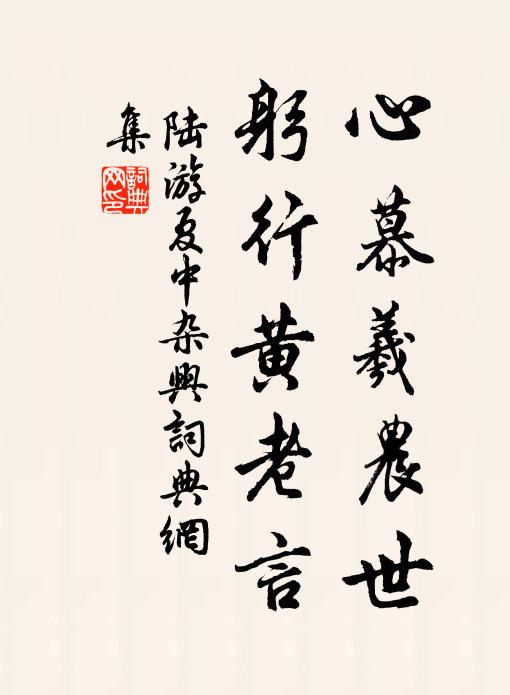 心慕羲農世
躬行黄老言
陆游夏中杂興詞典網
集
詞典
网印